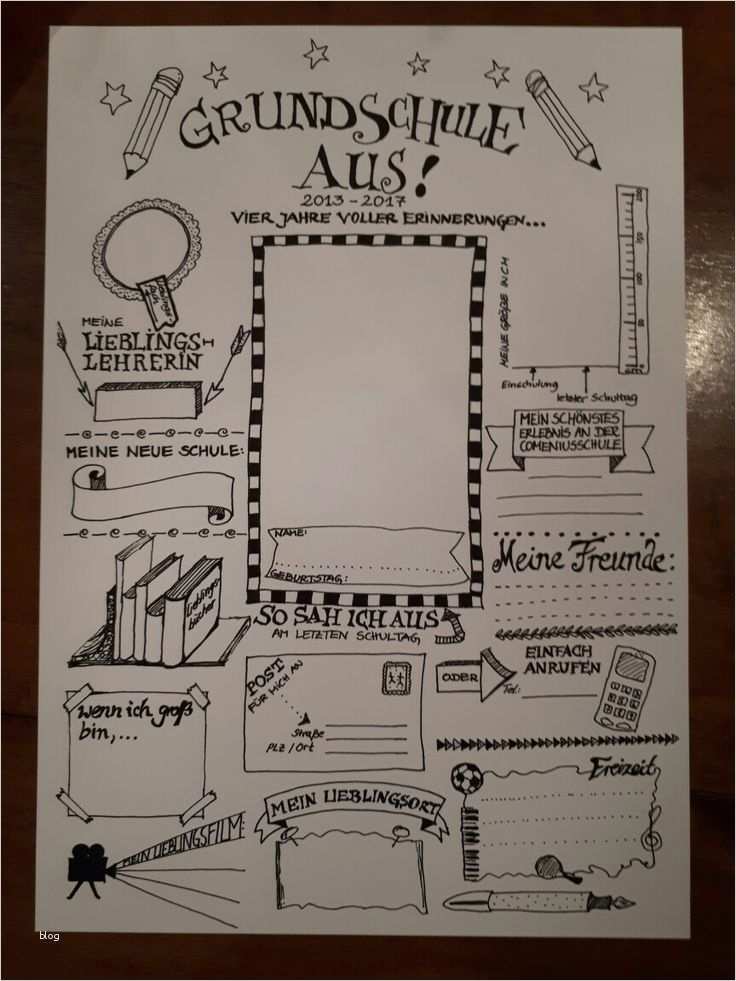 GRUNDSCHULE
AUS!
2013-2017
VIER JAHRE VOLLER ERINNERUNGEN...
MEINE
LIEBLINGS-
LEHRERIN
MEINE GRÖßE IN CM
Einschulung
letzter Schultag
MEIN SCHÖNSTES
ERLEBNIS AN DER
COMENIUSSCHULE
MEINE NEUE SCHULE:
NAME:
GEBURTSTAG:
SO SAH ICH AUS
AM LETZTEN SCHULTAG
Meine Freunde:
Lieblings-
bücher
POST
FÜR MICH AN
Straße
PLZ/Ort
ODER
EINFACH
ANRUFEN
Tel:
wenn ich groß
bin,...
MEIN LIEBLINGSORT
Freizeit
MEIN LIEBLINGSFILM:
blog